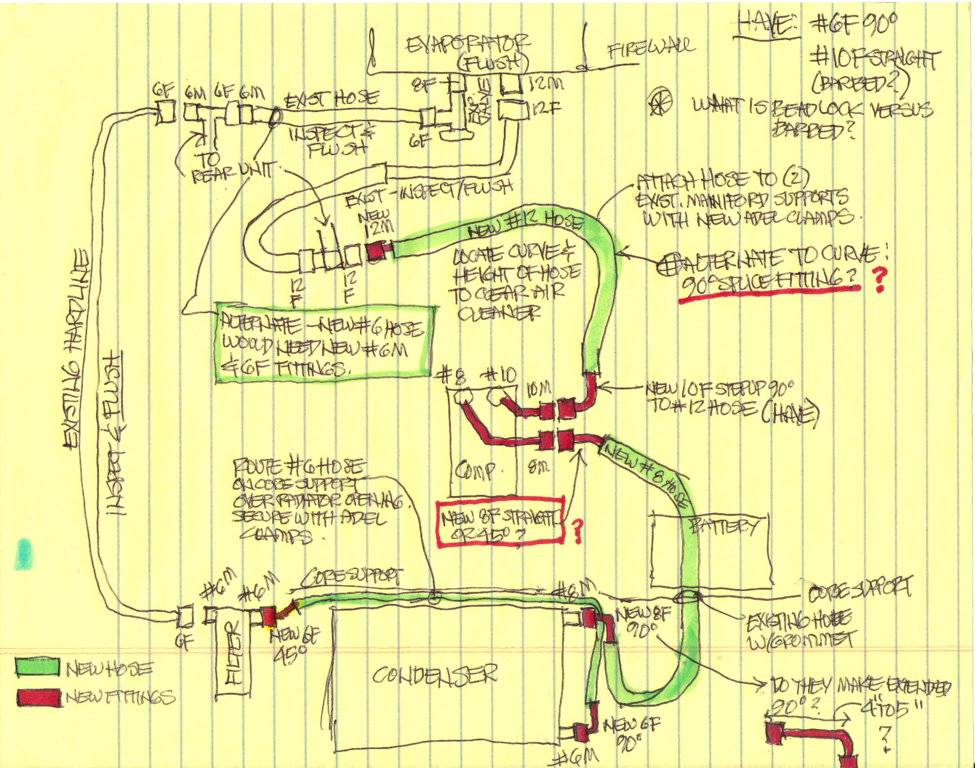 HAVE: #6F 90°
#10F STRAIGHT
(BARBED?)
WHAT IS BEADLOCK VERSUS
BARBED?
EVAPORATOR
(FLUSH)
FIREWALL
8F
12M
12F
6F
6M
6F
6M
EXIST HOSE
INSPECT &
FLUSH
6F
TO
REAR UNIT
EXIST - INSPECT/FLUSH
NEW
12M
NEW #12 HOSE
12
F
12
F
ATTACH HOSE TO (2)
EXIST. MANIFORD SUPPORTS
WITH NEW ADEL CLAMPS.
LOCATE CURVE &
HEIGHT OF HOSE
TO CLEAR AIR
CLEANER
ALTERNATE TO CURVE:
90° SPLICE FITTING? ?
ALTERNATE - NEW #6 HOSE
WOULD NEED NEW #6M
& 6F FITTINGS.
EXISTING HARDLINE
INSPECT & FLUSH
#8
#10
10M
NEW 10F STEPUP 90°
TO #12 HOSE (HAVE)
COMP.
8M
NEW #8 HOSE
NEW 8F STRAIGHT
OR 45°?
?
ROUTE #6 HOSE
ON CORE SUPPORT
OVER RADIATOR OPENING.
SECURE WITH ADEL
CLAMPS.
BATTERY
CORE SUPPORT
CORE SUPPORT
#6M
#6M
#8M
6F
NEW 6F
45°
FILTER
NEW 8F
90°
EXISTING HOLE
W/GROMMET
CONDENSER
NEW HOSE
NEW FITTINGS
NEW 6F
90°
#6M
DO THEY MAKE EXTENDED
90°?
4" TO 5"
?